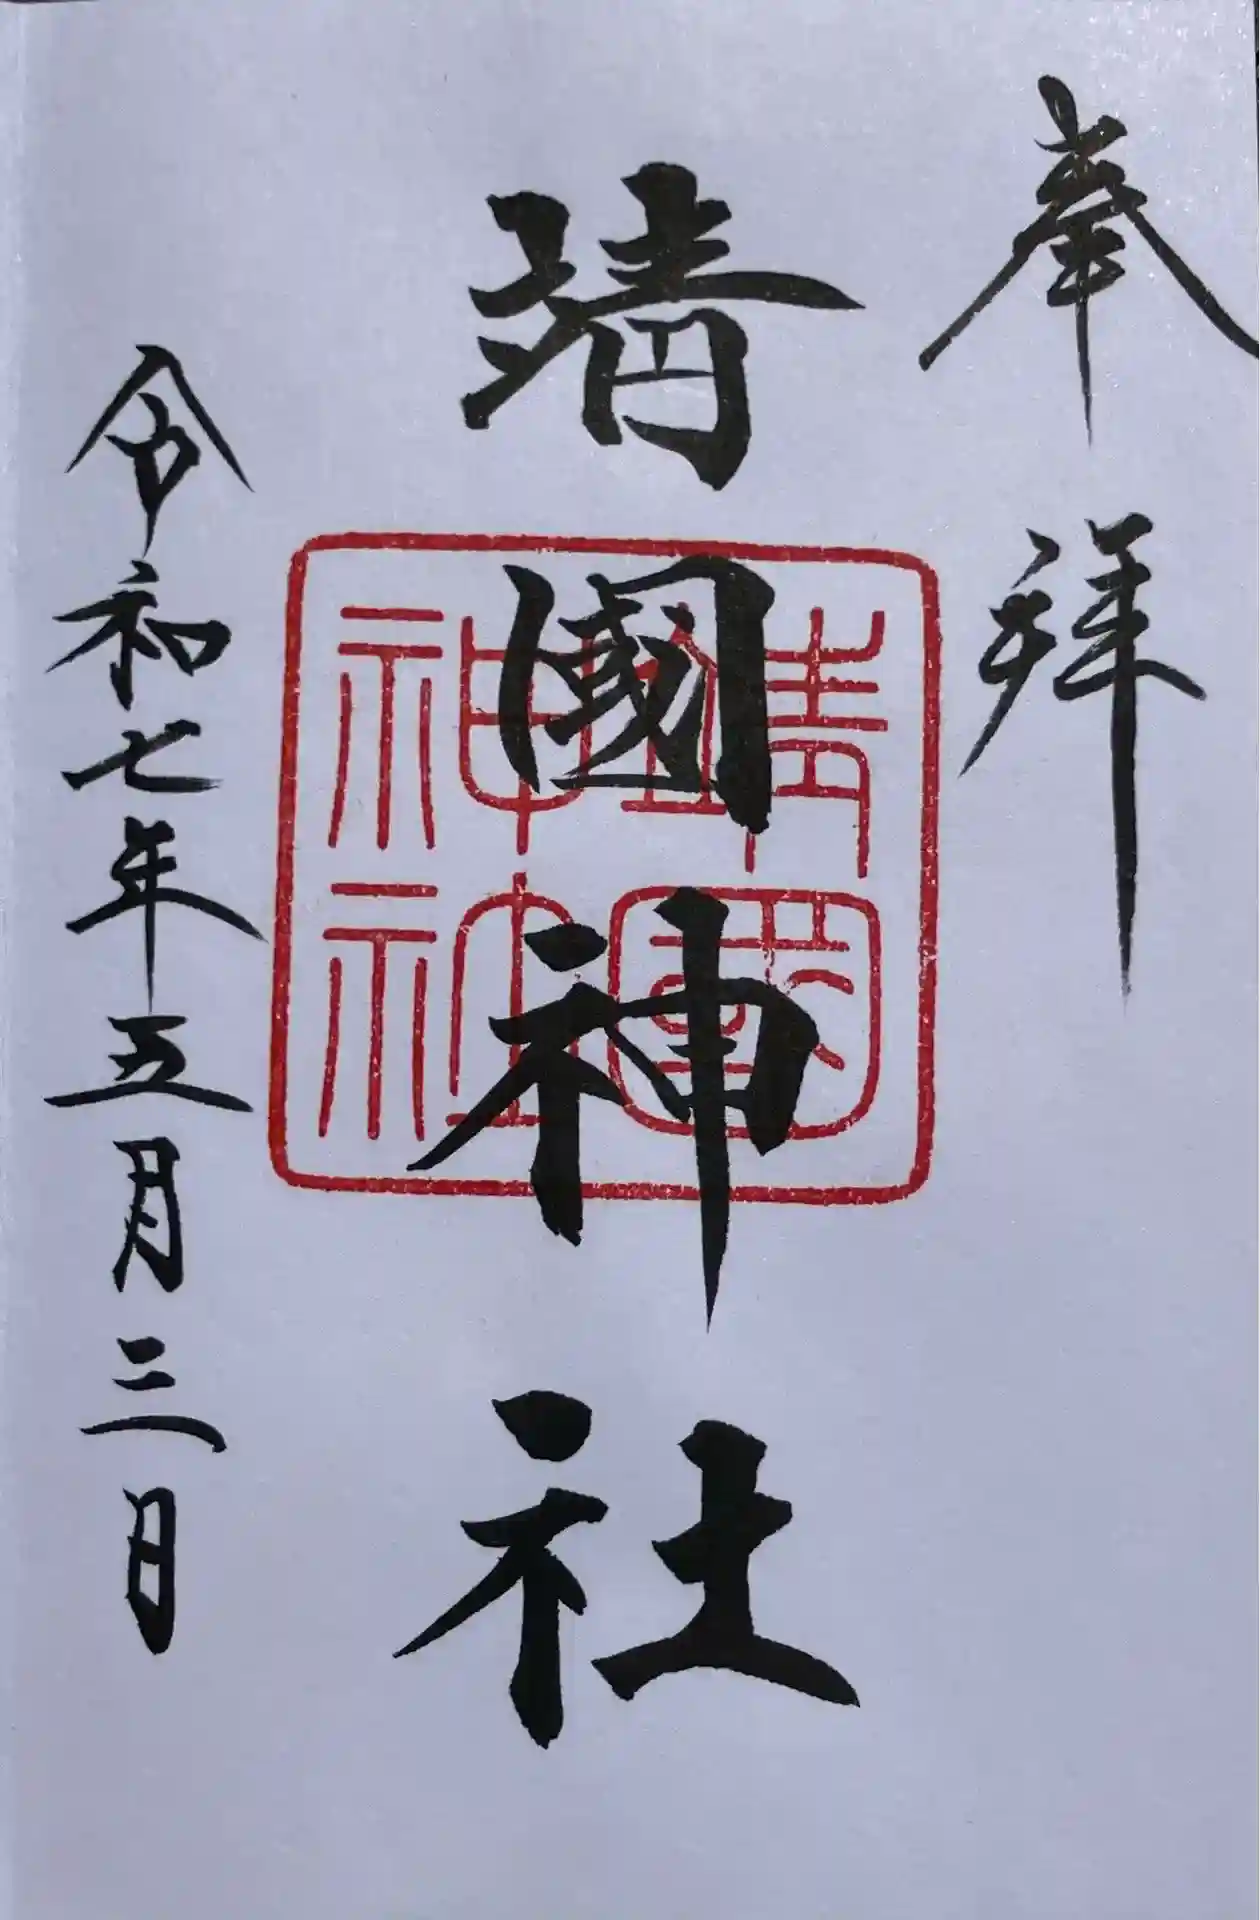 奉拝
靖國神社
靖國神社
令和七年五月三日